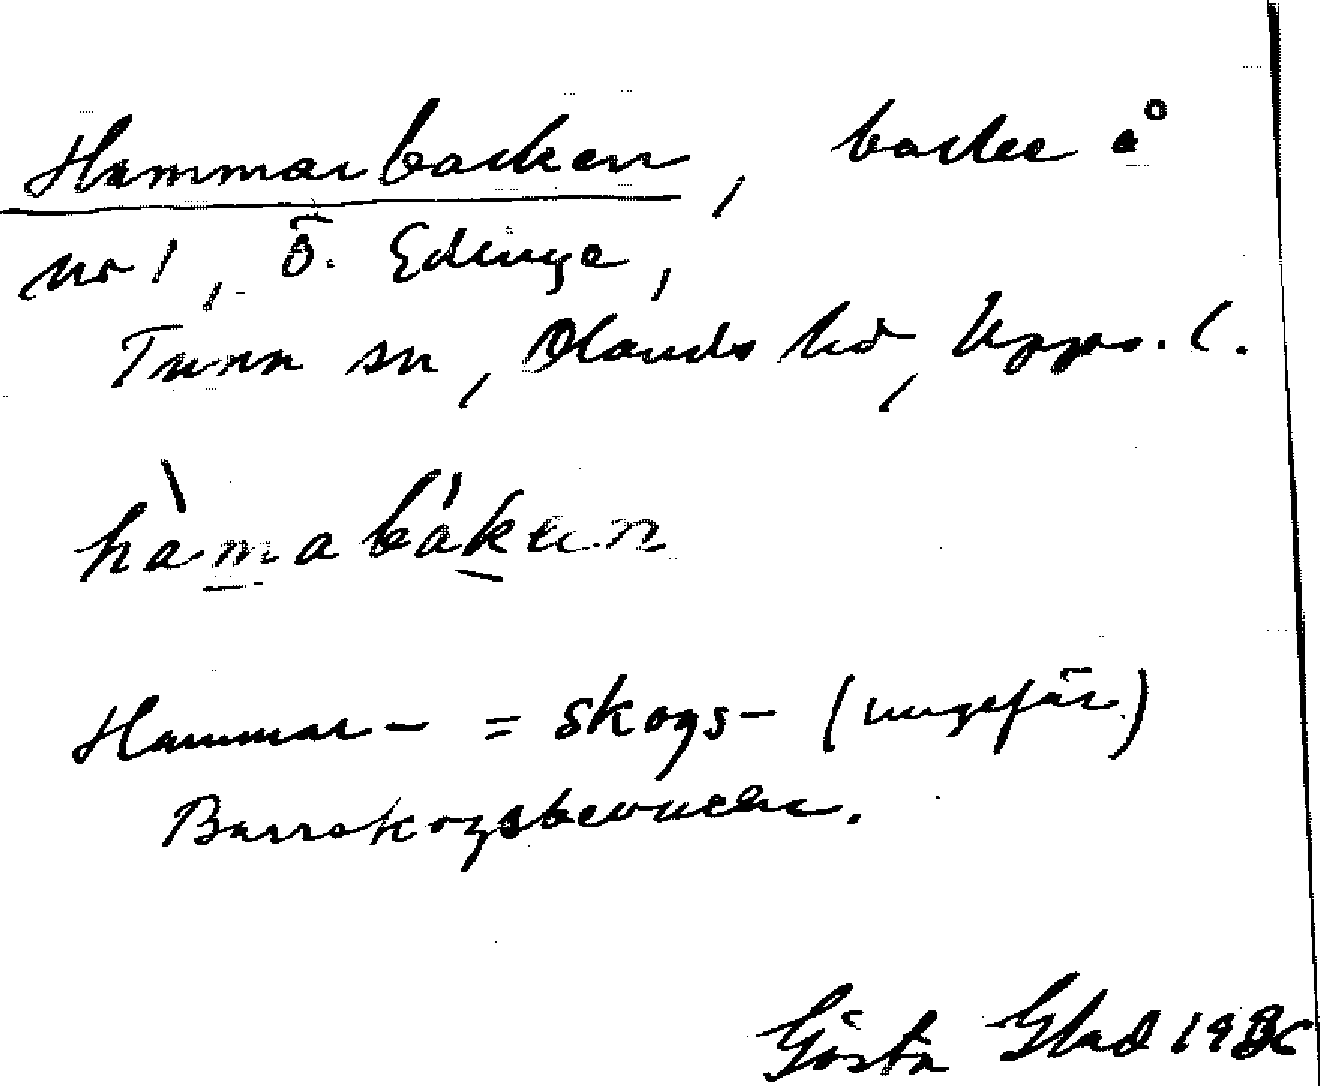 Hammarbacken, backe å
nr 1, Ö. Edinge,
Tuna sn, Olands hd, Upps. l.
hàmabákan
Hammar- = skogs- (ungefär)
Barrskogsbevuxen.
Gösta Glad